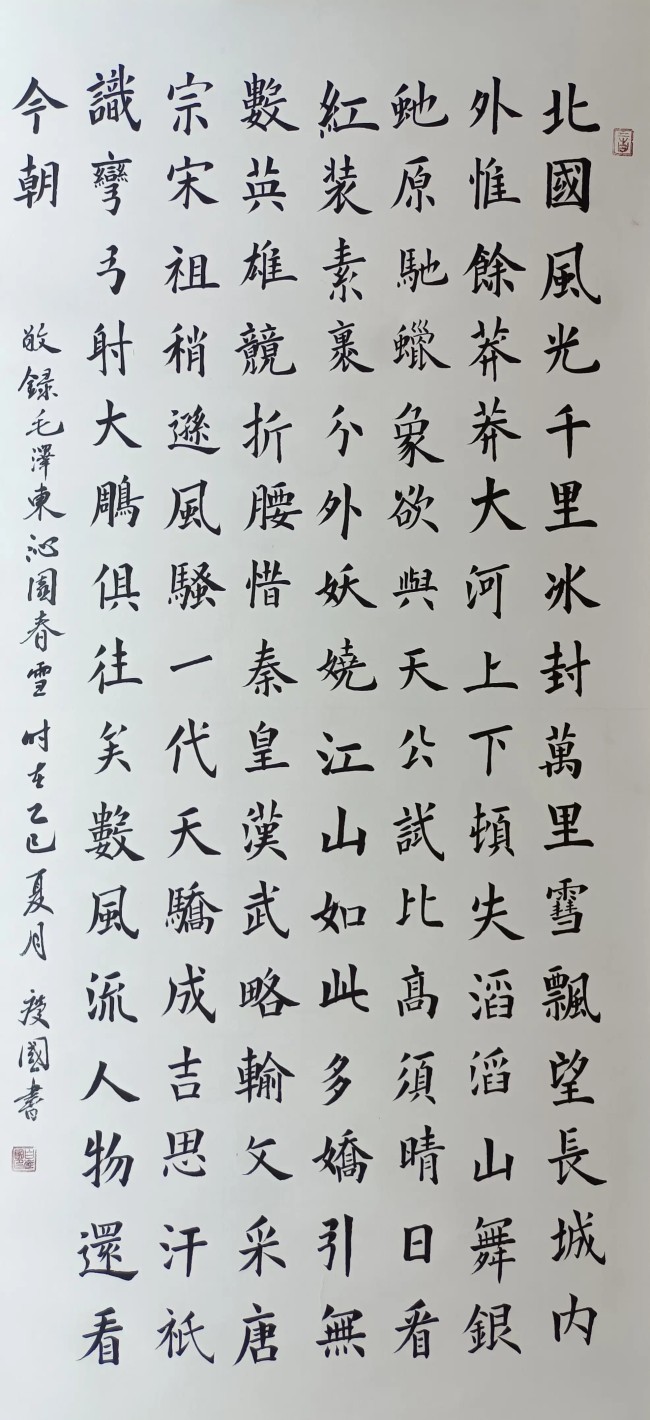 北國風光千里冰封萬里雪飄望長城内
外惟餘莽莽大河上下頓失滔滔山舞銀
虵原馳蠟象欲與天公試比髙須晴日看
紅装素裹分外妖嬈江山如此多嬌引無
數英雄競折腰惜秦皇漢武略輸文采唐
宗宋祖稍遜風騷一代天驕成吉思汗祇
識彎弓射大鵰俱往矣數風流人物還看
今朝
敬録毛澤東沁園春雪 时在乙巳夏月 國書